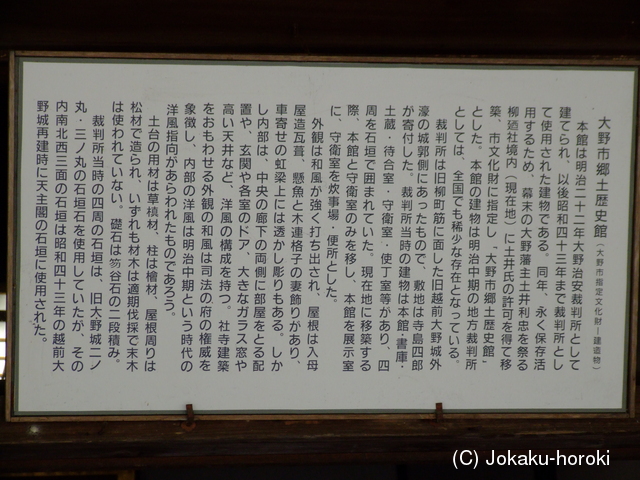 大野市郷土歴史館（大野市指定文化財ー建造物）
本館は明治二十二年大野治安裁判所として
建てられ、以後昭和四十三年まで裁判所とし
て使用された建物である。同年、永く保存活
用するため、幕末の大野藩主土井利忠を祭る
柳廼社境内（現在地）に土井氏の許可を得て移
築、市文化財に指定し「大野市郷土歴史館」
とした。本館の建物は明治中期の地方裁判所
としては、全国でも稀少な存在となっている。
裁判所は旧柳町筋に面した旧越前大野城外
濠の城郭側にあったもので、敷地は寺島四郎
が寄付した。裁判所当時の建物は本館・書庫・
土蔵・待合室・守衛室・使丁室等があり、四
周を石垣で囲まれていた。現在地に移築する
際、本館と守衛室のみを移し、本館を展示室
に、守衛室を炊事場・便所とした。
外観は和風が強く打ち出され、屋根は入母
屋造瓦葺、懸魚と木連格子の妻飾りがあり、
車寄せの虹梁上には透かし彫りもある。しか
し内部は、中央の廊下の両側に部屋をとる配
置や、玄関や各室のドア、大きなガラス窓や
高い天井など、洋風の構成を持つ。社寺建築
をおもわせる外観の和風は司法の府の権威を
象徴し、内部の洋風は明治中期という時代の
洋風指向があらわれたものであろう。
土台の用材は草槙材、柱は檜材、屋根周りは
松材で造られ、いずれも材木は適期伐採で末木
は使われていない。礎石は笏谷石の二段積み。
裁判所当時の四周の石垣は、旧大野城二ノ
丸・三ノ丸の石垣石を使用していたが、その
内南北西三面の石垣は昭和四十三年の越前大
野城再建時に天主閣の石垣に使用された。
(C) Jokaku-horoki